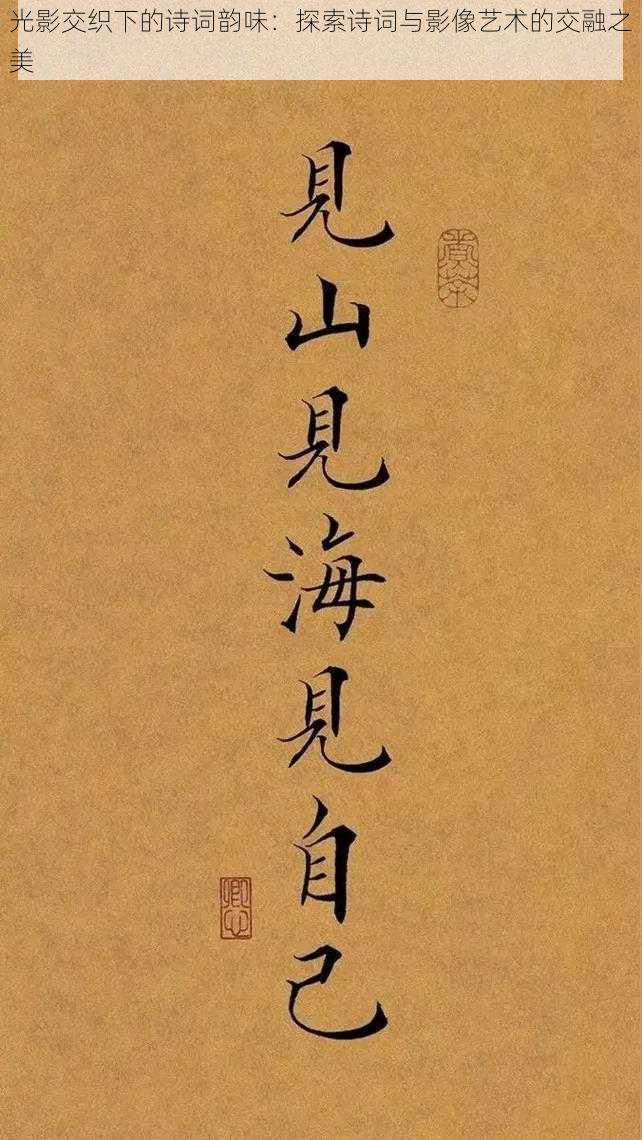 光影交织下的诗词韵味：探索诗词与影像艺术的交融之
美
見山見海見自己